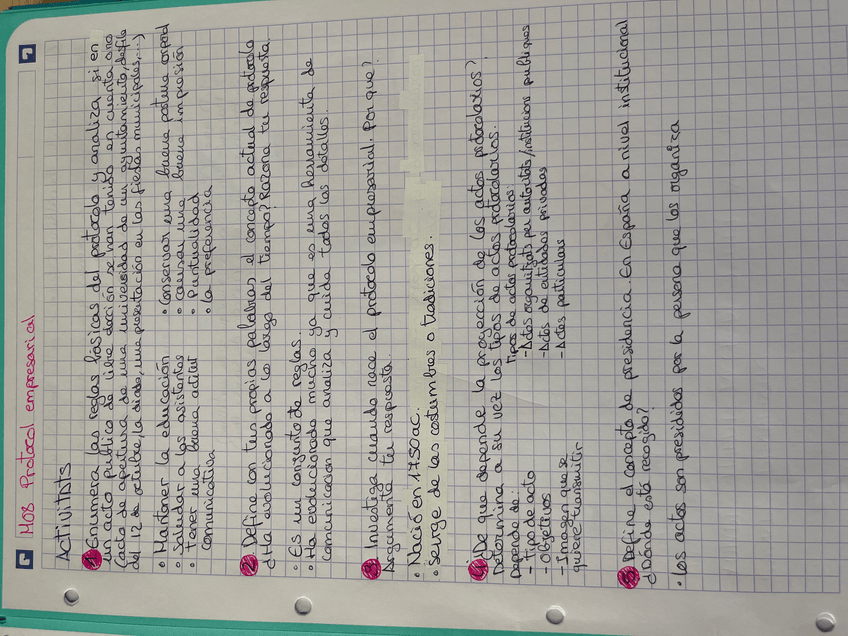 M08 Protocol empresarial
Activitats
1 Enumera las reglas básicas del protocolo y analiza si en
un acto público de libre elección se han tenido en cuenta
(acto de apertura de una universidad de un ayuntamiento, desfile
del 12 de octubre, la diada, una presentación en las fiestas municipales,...)
• Mantener la educación
• Saludar a los asistentes
• Tener una buena actitut
comunicativa
• Conservar una buena postura corporal
• causar una buena impresión
• Puntualidad
• La preferencia
2 Define con tus propias palabras el concepto actual de protocolo
¿Ha evolucionado a lo largo del tiempo? Razona tu respuesta.
• Es un conjunto de reglas.
• Ha evolucionado mucho ya que es una herramienta de
comunicacion que analiza y cuida todos los detalles.
3 Investiga cuando nace el protocolo empresarial. Por que?
Argumenta tu respuesta
• Nació en 1750 ac.
• Seurge de las costumbres o tradiciones.
4 ¿De que depende la proyección de los actos protocolarios?
Determina a su vez los tipos de actos protocolarios.
Depende de:
- Tipo de acto
- Objetivos
- Imagen que se
quiere transmitir
Tipos de actos protocolarios:
- Actos organitzats per autoritats/institucions publiques
- Actos de entidades privadas
- Actes particulars
5 Define el concepto de presidencia. En España a nivel institucional
¿Dónde está recogido?
• Los actos son presididos por la persona que los organiza